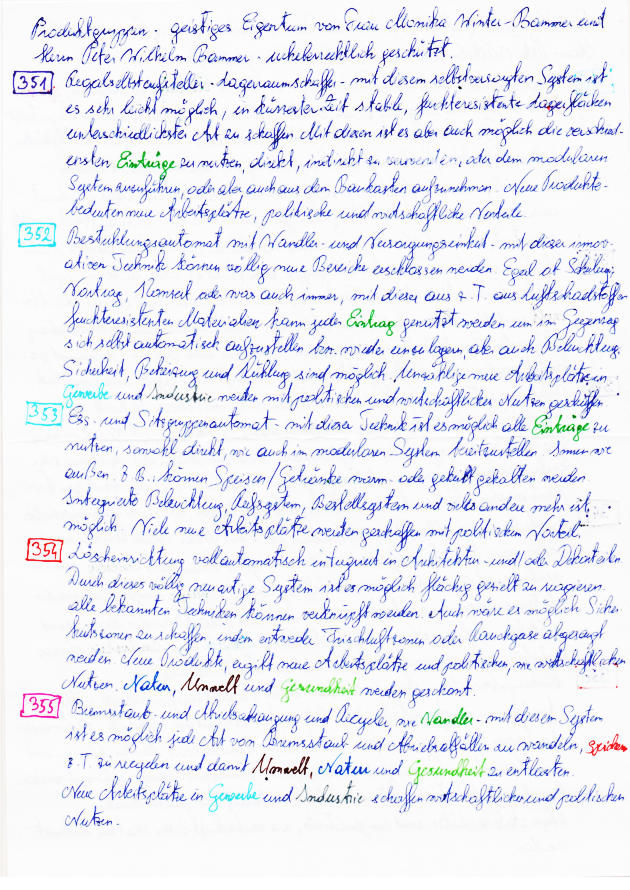 Produktgruppen - geistiges Eigentum von Frau Monika Winter-Bammer und
Herrn Peter Wilhelm Bammer - urheberrechtlich geschützt.
351 Regalselbstaufsteller - Lagerraumschaffer - mit diesem selbstversorgten System ist
es sehr leicht möglich, in kürzester Zeit stabile, feuchteresistente Lagerflächen
unterschiedlichster Art zu schaffen. Mit diesen ist es aber auch möglich die verschied-
ensten Einträge zu nutzen, direkt, indirekt zu verwenden, oder dem modularen
System zuzuführen, oder aber auch aus dem Baukasten aufzunehmen. Neue Produkte
bedeuten neue Arbeitsplätze, politische und wirtschaftliche Vorteile.
352 Bestuhlungsautomat mit Wandler- und Versorgungseinheit - mit dieser innov-
ativen Technik können völlig neue Bereiche erschlossen werden. Egal ob Schulung,
Vortrag, Konzert oder was auch immer, mit dieser aus z.T. aus Luftschadstoffen
feuchteresistenten Materialien kann jeder Eintrag genutzt werden um im Gegenzug
sich selbst automatisch aufzustellen bzw. wieder einzulagern, aber auch Beleuchtung,
Sicherheit, Beheizung und Kühlung sind möglich. Unzählige neue Arbeitsplätze in
Gewerbe und Industrie werden mit politischen und wirtschaftlichen Nutzen geschaffen
353 Ess- und Sitzgruppenautomat - mit dieser Technik ist es möglich alle Einträge zu
nutzen, sowohl direkt, wie auch im modularen System bereitzustellen. Innen wie
außen. Z.B. können Speisen/Getränke warm- oder gekühlt gehalten werden.
Integrierte Beleuchtung, Rufsystem, Bestellsystem und vieles andere mehr ist
möglich. Viele neue Arbeitsplätze werden geschaffen mit politischen Vorteil.
354 Löscheinrichtung vollautomatisch integriert in Architektur- und/oder Dekorteilen
Durch dieses völlig neuartige System ist es möglich flächig gezielt zu reagieren.
Alle bekannten Techniken können verknüpft werden. Auch wäre es möglich Sicher-
heitszonen zu schaffen, indem entweder Frischluftzonen oder Rauchgase abgesaugt
werden. Neue Produkte, ergibt neue Arbeitsplätze und politischen, wie wirtschaftlichen
Nutzen. Natur, Umwelt und Gesundheit werden geschont.
355 Bremsstaub- und Abriebabsaugung und Recycler, wie Wandler - mit diesem System
ist es möglich jede Art von Bremsstaub und Abriebabfällen zu wandeln, speichern
z.T. zu recyceln und damit Umwelt, Natur und Gesundheit zu entlasten.
Neue Arbeitsplätze in Gewerbe und Industrie schaffen wirtschaftlichen und politischen
Nutzen.